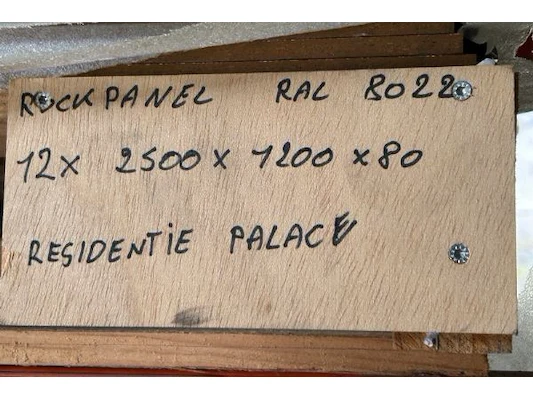 ROCKPANEL RAL 8022
12x 2500 x 1200 x 80
RESIDENTIE PALACE